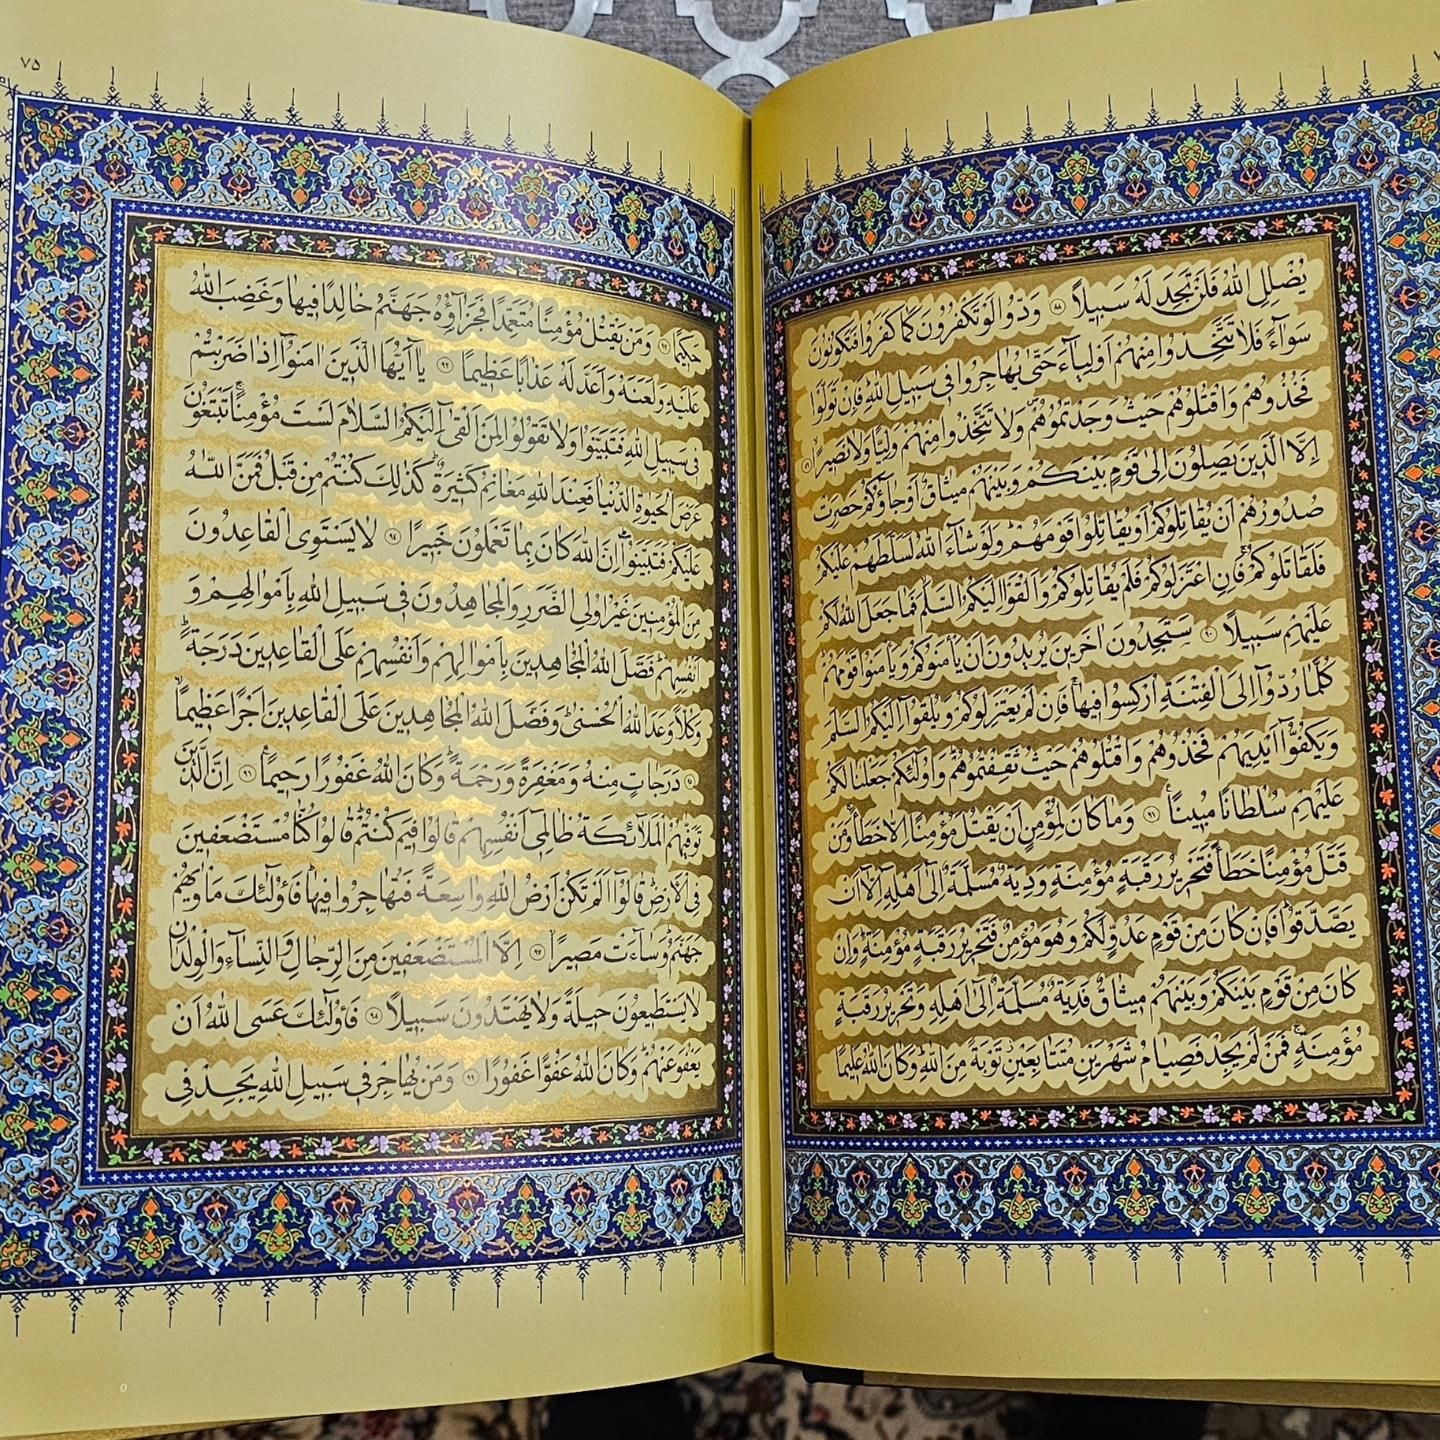 يُضْلِلِ اللّٰهُ فَلَنْ تَجِدَ لَهُ سَبِيلًا ﴿۸۸﴾ وَدُّوا لَوْ تَكْفُرُونَ كَمَا كَفَرُوا فَتَكُونُونَ
سَوَآءً فَلَا تَتَّخِذُوا مِنْهُمْ اَوْلِيَآءَ حَتّٰى يُهَاجِرُوا فِى سَبِيلِ اللّٰهِ فَاِنْ تَوَلَّوْا
فَخُذُوهُمْ وَاقْتُلُوهُمْ حَيْثُ وَجَدْتُمُوهُمْ وَلَا تَتَّخِذُوا مِنْهُمْ وَلِيًّا وَلَا نَصِيرًا ﴿۸۹﴾
اِلَّا الَّذِينَ يَصِلُونَ اِلٰى قَوْمٍ بَيْنَكُمْ وَبَيْنَهُمْ مِيثَاقٌ اَوْ جَآؤُكُمْ حَصِرَتْ
صُدُورُهُمْ اَنْ يُقَاتِلُوكُمْ اَوْ يُقَاتِلُوا قَوْمَهُمْ وَلَوْ شَآءَ اللّٰهُ لَسَلَّطَهُمْ عَلَيْكُمْ
فَلَقَاتَلُوكُمْ فَاِنِ اعْتَزَلُوكُمْ فَلَمْ يُقَاتِلُوكُمْ وَاَلْقَوْا اِلَيْكُمُ السَّلَمَ فَمَا جَعَلَ اللّٰهُ لَكُمْ
عَلَيْهِمْ سَبِيلًا ﴿۹۰﴾ سَتَجِدُونَ اٰخَرِينَ يُرِيدُونَ اَنْ يَأْمَنُوكُمْ وَيَأْمَنُوا قَوْمَهُمْ
كُلَّمَا رُدُّوٓا اِلَى الْفِتْنَةِ اُرْكِسُوا فِيهَا فَاِنْ لَمْ يَعْتَزِلُوكُمْ وَيُلْقُوٓا اِلَيْكُمُ السَّلَمَ
وَيَكُفُّوٓا اَيْدِيَهُمْ فَخُذُوهُمْ وَاقْتُلُوهُمْ حَيْثُ ثَقِفْتُمُوهُمْ وَاُولٰئِكُمْ جَعَلْنَا لَكُمْ
عَلَيْهِمْ سُلْطَانًا مُبِينًا ﴿۹۱﴾ وَمَا كَانَ لِمُؤْمِنٍ اَنْ يَقْتُلَ مُؤْمِنًا اِلَّا خَطَأً وَمَنْ
قَتَلَ مُؤْمِنًا خَطَأً فَتَحْرِيرُ رَقَبَةٍ مُؤْمِنَةٍ وَدِيَةٌ مُسَلَّمَةٌ اِلٰٓى اَهْلِهِ اِلَّآ اَنْ
يَصَّدَّقُوا فَاِنْ كَانَ مِنْ قَوْمٍ عَدُوٍّ لَكُمْ وَهُوَ مُؤْمِنٌ فَتَحْرِيرُ رَقَبَةٍ مُؤْمِنَةٍ وَاِنْ
كَانَ مِنْ قَوْمٍ بَيْنَكُمْ وَبَيْنَهُمْ مِيثَاقٌ فَدِيَةٌ مُسَلَّمَةٌ اِلٰٓى اَهْلِهِ وَتَحْرِيرُ رَقَبَةٍ
مُؤْمِنَةٍ فَمَنْ لَمْ يَجِدْ فَصِيَامُ شَهْرَيْنِ مُتَتَابِعَيْنِ تَوْبَةً مِنَ اللّٰهِ وَكَانَ اللّٰهُ عَلِيمًا
۷۵
حَكِيمًا ﴿۹۲﴾ وَمَنْ يَقْتُلْ مُؤْمِنًا مُتَعَمِّدًا فَجَزَآؤُهُ جَهَنَّمُ خَالِدًا فِيهَا وَغَضِبَ اللّٰهُ
عَلَيْهِ وَلَعَنَهُ وَاَعَدَّ لَهُ عَذَابًا عَظِيمًا ﴿۹۳﴾ يَآ اَيُّهَا الَّذِينَ اٰمَنُوٓا اِذَا ضَرَبْتُمْ
فِى سَبِيلِ اللّٰهِ فَتَبَيَّنُوا وَلَا تَقُولُوا لِمَنْ اَلْقٰىٓ اِلَيْكُمُ السَّلَامَ لَسْتَ مُؤْمِنًا تَبْتَغُونَ
عَرَضَ الْحَيٰوةِ الدُّنْيَا فَعِنْدَ اللّٰهِ مَغَانِمُ كَثِيرَةٌ كَذٰلِكَ كُنْتُمْ مِنْ قَبْلُ فَمَنَّ اللّٰهُ
عَلَيْكُمْ فَتَبَيَّنُوٓا اِنَّ اللّٰهَ كَانَ بِمَا تَعْمَلُونَ خَبِيرًا ﴿۹۴﴾ لَا يَسْتَوِى الْقَاعِدُونَ
مِنَ الْمُؤْمِنِينَ غَيْرُ اُولِى الضَّرَرِ وَالْمُجَاهِدُونَ فِى سَبِيلِ اللّٰهِ بِاَمْوَالِهِمْ وَ
اَنْفُسِهِمْ فَضَّلَ اللّٰهُ الْمُجَاهِدِينَ بِاَمْوَالِهِمْ وَاَنْفُسِهِمْ عَلَى الْقَاعِدِينَ دَرَجَةً
وَكُلًّا وَعَدَ اللّٰهُ الْحُسْنٰى وَفَضَّلَ اللّٰهُ الْمُجَاهِدِينَ عَلَى الْقَاعِدِينَ اَجْرًا عَظِيمًا
﴿۹۵﴾ دَرَجَاتٍ مِنْهُ وَمَغْفِرَةً وَرَحْمَةً وَكَانَ اللّٰهُ غَفُورًا رَحِيمًا ﴿۹۶﴾ اِنَّ الَّذِينَ
تَوَفّٰيهُمُ الْمَلَآئِكَةُ ظَالِمِىٓ اَنْفُسِهِمْ قَالُوا فِيمَ كُنْتُمْ قَالُوا كُنَّا مُسْتَضْعَفِينَ
فِى الْاَرْضِ قَالُوٓا اَلَمْ تَكُنْ اَرْضُ اللّٰهِ وَاسِعَةً فَتُهَاجِرُوا فِيهَا فَاُولٰٓئِكَ مَاْوٰيهُمْ
جَهَنَّمُ وَسَآءَتْ مَصِيرًا ﴿۹۷﴾ اِلَّا الْمُسْتَضْعَفِينَ مِنَ الرِّجَالِ وَالنِّسَآءِ وَالْوِلْدَانِ
لَا يَسْتَطِيعُونَ حِيلَةً وَلَا يَهْتَدُونَ سَبِيلًا ﴿۹۸﴾ فَاُولٰٓئِكَ عَسَى اللّٰهُ اَنْ
يَعْفُوَ عَنْهُمْ وَكَانَ اللّٰهُ عَفُوًّا غَفُورًا ﴿۹۹﴾ وَمَنْ يُهَاجِرْ فِى سَبِيلِ اللّٰهِ يَجِدْ فِى